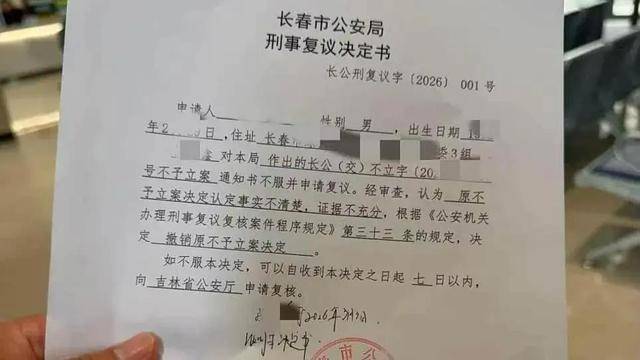 长春市公安局
刑事复议决定书
长公刑复议字〔2026〕001号
申请人 性别 男 ,出生日期
年2 日,住址 长春市 委3组
对本局 作出的长公(交)不立字〔20
号不予立案 通知书不服并申请复议。经审查,认为 原不
予立案决定认定事实不清楚,证据不充分,根据《公安机关
办理刑事复议复核案件程序规定》第三十三 条的规定,决
定 撤销原不予立案决定 。
如不服本决定,可以自收到本决定之日起 七 日以内,
向 吉林省公安厅 申请复核。
2026年
决定书